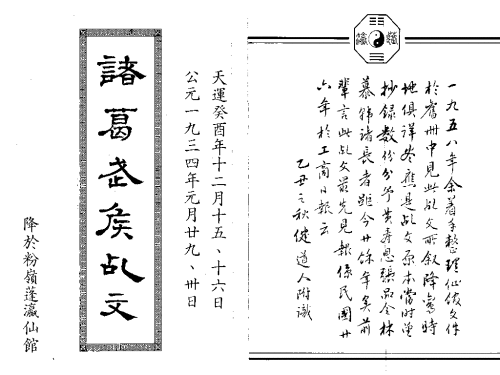 一九五八年余着手整理仙館文件
於舊冊中見此乩文所叙降鸞時
地俱詳 應是乩文原本當時曾
抄錄數份分予黃壽恩張品全林
慕韓諸長者距今廿餘年矣前
輩言此乩文最先見報係民國廿
六年於工商日報云
乙丑之秋健道人附識
天運癸酉年十二月十五、十六日
公元一九三四年元月廿九、卅日
諸葛武侯乩文
降於粉嶺蓬瀛仙館